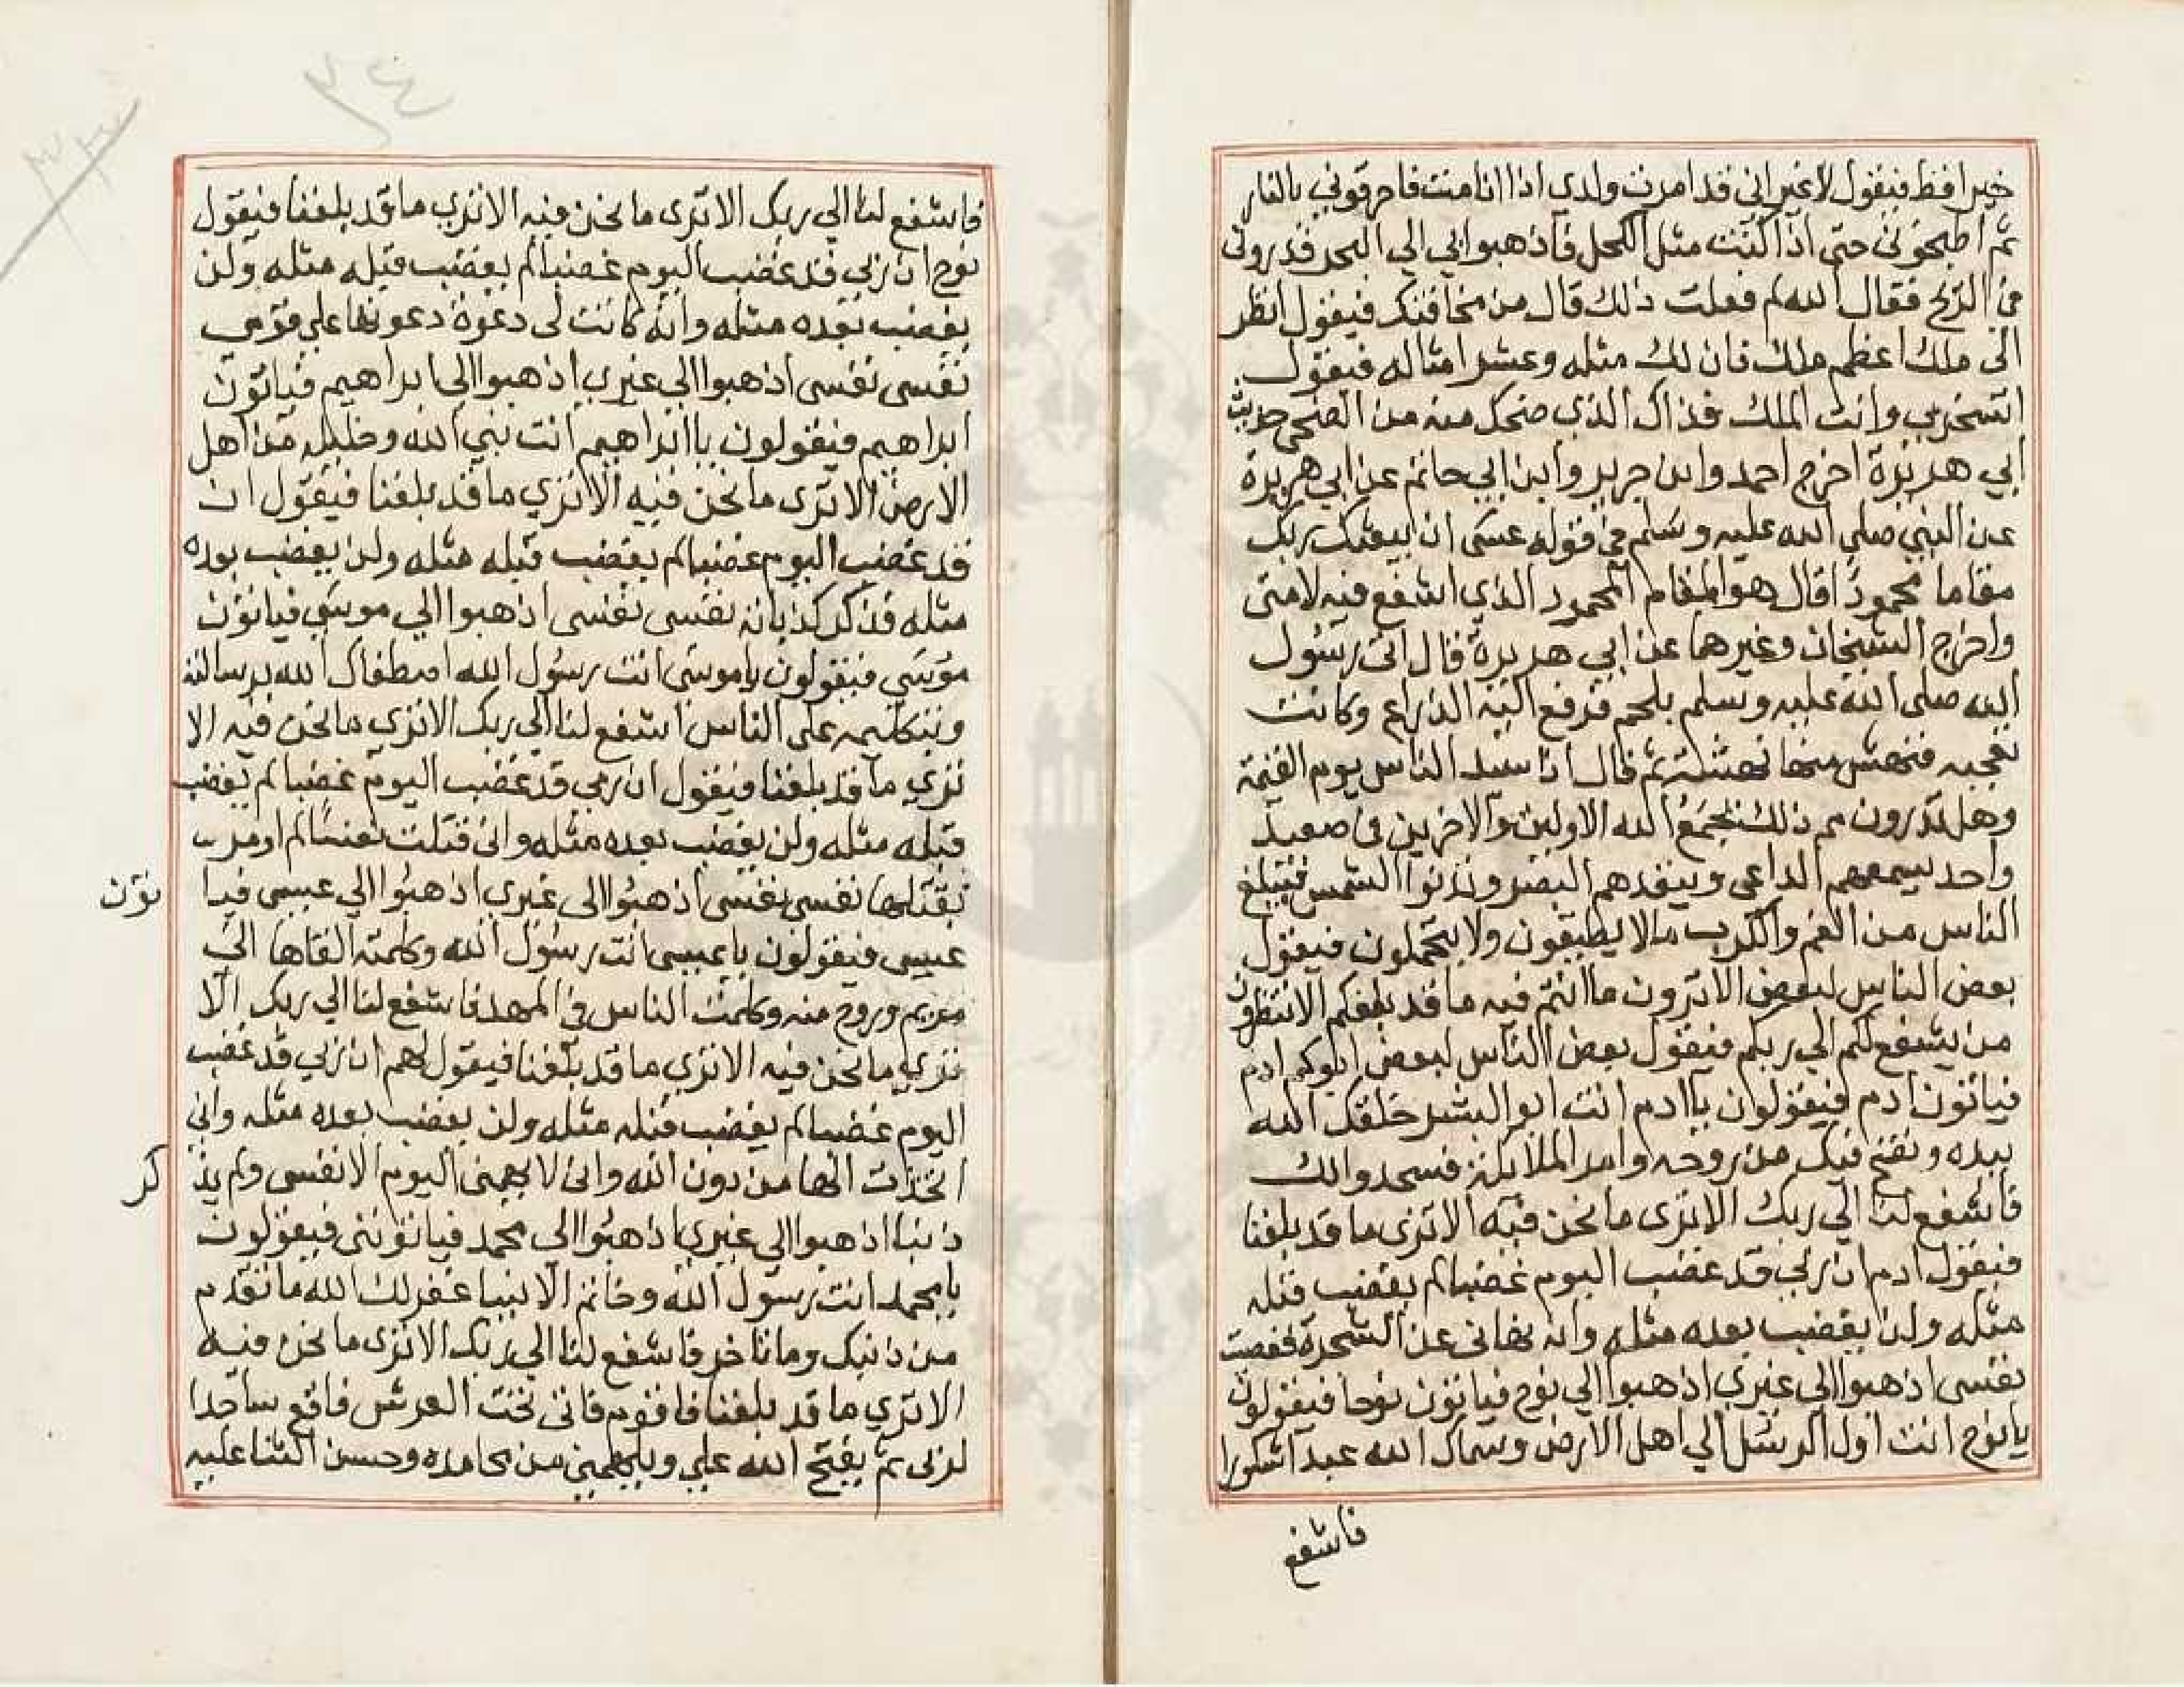 خيرا قط فيقول لا غير اني قد امرت ولدي اذا انا مت فاحرقوني بالنار
ثم اطحنوني حتى اذا كنت مثل الكحل فاذهبوا بي الى البحر فذروني
في الريح فقال الله لم فعلت ذلك قال من مخافتك فيقول انظر
الى ملك اعظم ملك فان لك مثله وعشرا مثاله فيقول
اتسخر بي وانت الملك فذاك الذي ضحك منه من الضحى حديث
ابي هريرة اخرج احمد وابن جرير وابن ابي حاتم عن ابي هريرة
عن النبي صلى الله عليه وسلم في قوله عسى ان يبعثك ربك
مقاما محمودا قال هو المقام المحمود الذي اشفع فيه لامتي
واخرج الشيخان وغيرهما عن ابي هريرة قال اتى رسول
الله صلى الله عليه وسلم بلحم فرفع اليه الذراع وكانت
تعجبه فنهش منها نهشة ثم قال انا سيد الناس يوم القيمة
وهل تدرون مم ذلك يجمع الله الاولين والاخرين في صعيد
واحد يسمعهم الداعي وينفذهم البصر وتدنوا الشمس فيبلغ
الناس من الغم والكرب مالا يطيقون ولا يحتملون فيقول
بعض الناس لبعض الا ترون ما انتم فيه ما قد بلغكم الا تنظرون
من يشفع لكم الي ربكم فيقول بعض الناس لبعض ابوكم ادم
فياتون ادم فيقولون يا ادم انت ابو البشر خلقك الله
بيده ونفخ فيك من روحه وامر الملائكة فسجدوا لك
فاشفع لنا الي ربك الا ترى ما نحن فيه الا ترى ما قد بلغنا
فيقول ادم ان ربي قد غضب اليوم غضبا لم يغضب قبله
مثله ولن يغضب بعده مثله وانه نهاني عن الشجرة فعصيت
نفسي اذهبوا الي غيري اذهبوا الي نوح فياتون نوحا فيقولون
يا نوح انت اول الرسل الي اهل الارض وسماك الله عبدا شكورا
فاشفع
٣٤
فاشفع لنا الي ربك الا ترى ما نحن فيه الا تري ما قد بلغنا فيقول
نوح ان ربي قد غضب اليوم غضبا لم يغضب قبله مثله ولن
يغضب بعده مثله وانه كانت لى دعوة دعوتها على قومي
نفسي نفسي اذهبوا الى غيري اذهبوا الي ابراهيم فياتون
ابراهيم فيقولون يا ابراهيم انت نبي الله وخليله من اهل
الارض الا ترى ما نحن فيه الا تري ما قد بلغنا فيقول ان
قد غضب اليوم غضبا لم يغضب قبله مثله ولن يغضب بعده
مثله فذكر كذباته نفسي نفسي اذهبوا الي موسي فياتون
موسي فيقولون يا موسى انت رسول الله اصطفاك الله برسالته
وبتكليمه على الناس اشفع لنا الي ربك الا تري ما نحن فيه الا
تري ما قد بلغنا فيقول ان ربي قد غضب اليوم غضبا لم يغضب
قبله مثله ولن يغضب بعده مثله واني قتلت نفسا لم اومر
بقتلها نفسي نفسي اذهبوا الى غيري اذهبوا الي عيسى فيا تون
عيسى فيقولون يا عيسى انت رسول الله وكلمته القاها الى
مريم وروح منه وكلمت الناس في المهد فاشفع لنا الي ربك الا
تري ما نحن فيه الا تري ما قد بلغنا فيقول لهم ان ربي قد غضب
اليوم غضبا لم يغضب قبله مثله ولن يغضب بعده مثله واني
اتخذت الها من دون الله واني لا يهمني اليوم الا نفسي ولم يذ كر
ذنبا اذهبوا الي غيري اذهبوا الى محمد فياتونني فيقولون
يا محمد انت رسول الله وخاتم الانبيا غفر لك الله ما تقدم
من ذنبك وما تاخر فاشفع لنا الي ربك الا تري ما نحن فيه
الا تري ما قد بلغنا فاقوم فاتي تحت العرش فاقع ساجدا
لربي ثم يفتح الله علي ويلهمني من محامده وحسن الثنا عليه